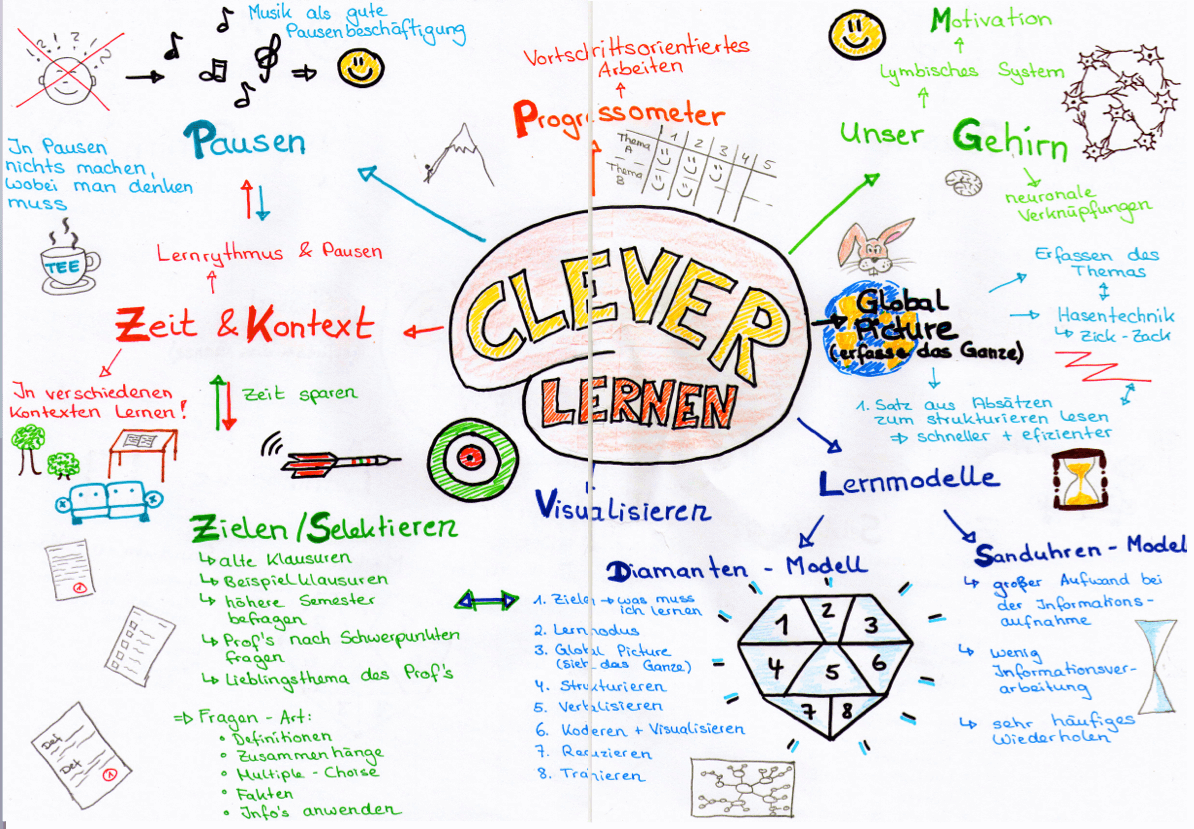 Musik als gute
Pausenbeschäftigung
Pausen
In Pausen
nichts machen,
wobei man denken
muss
TEE
Lernrythmus & Pausen
Zeit & Kontext
In verschiedenen
Kontexten Lernen!
Zeit sparen
Vortschrittsorientiertes
Arbeiten
Progressometer
Thema A
Thema B
1 2 3 4 5
Motivation
Lymbisches System
unser Gehirn
neuronale
Verknüpfungen
CLEVER
LERNEN
Global
Picture
(erfasse das Ganze)
Erfassen des
Themas
Hasentechnik
↳ Zick-Zack
1. Satz aus Absätzen
zum strukturieren lesen
⇒ schneller + efizienter
Lernmodelle
Visualisieren
Zielen/Selektieren
↳ alte Klausuren
↳ Beispielklausuren
↳ höhere Semester
befragen
↳ Prof's nach Schwerpunkten
fragen
↳ Lieblingsthema des Prof's
⇒ Fragen-Art:
° Definitionen
° Zusammenhänge
° Multiple-Choise
° Fakten
° Info's anwenden
Def
Def
1
1
Diamanten - Modell
1. Zielen → was muss
ich lernen
2. Lernmodus
3. Global Picture
(sieh das Ganze)
4. Strukturieren
5. Verbalisieren
6. Kodieren + Visualisieren
7. Reduzieren
8. Trainieren
1 2 3
4 5 6
7 8
Sanduhren - Modell
↳ großer Aufwand bei
der Informations-
aufnahme
↳ wenig
Informationsver-
arbeitung
↳ sehr häufiges
Wiederholen